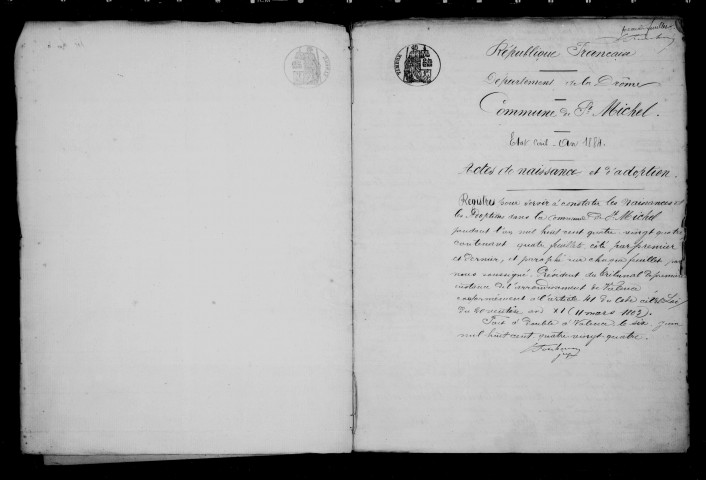 premier feuillet
République Francaise
Département de la Drôme
Commune de St Michel.
Etat civil - An 1884.
Actes de naissance et d'adoption.
Registres pour servir à constater les naissances et
les Adoptions dans la commune de St Michel
pendant l'an mil huit cent quatre-vingt quatre
contenant quatre feuillets, côté par premier
et dernier, et paraphé sur chaque feuillet, par
nous soussigné, Président du tribunal de première
instance de l'arrondissement de Valence
conformément à l'article 41 du Code civil Loi
du 20 ventôse an XI (11 mars 1803).
Fait à double à Valence le six
mil huit cent quatre vingt quatre.